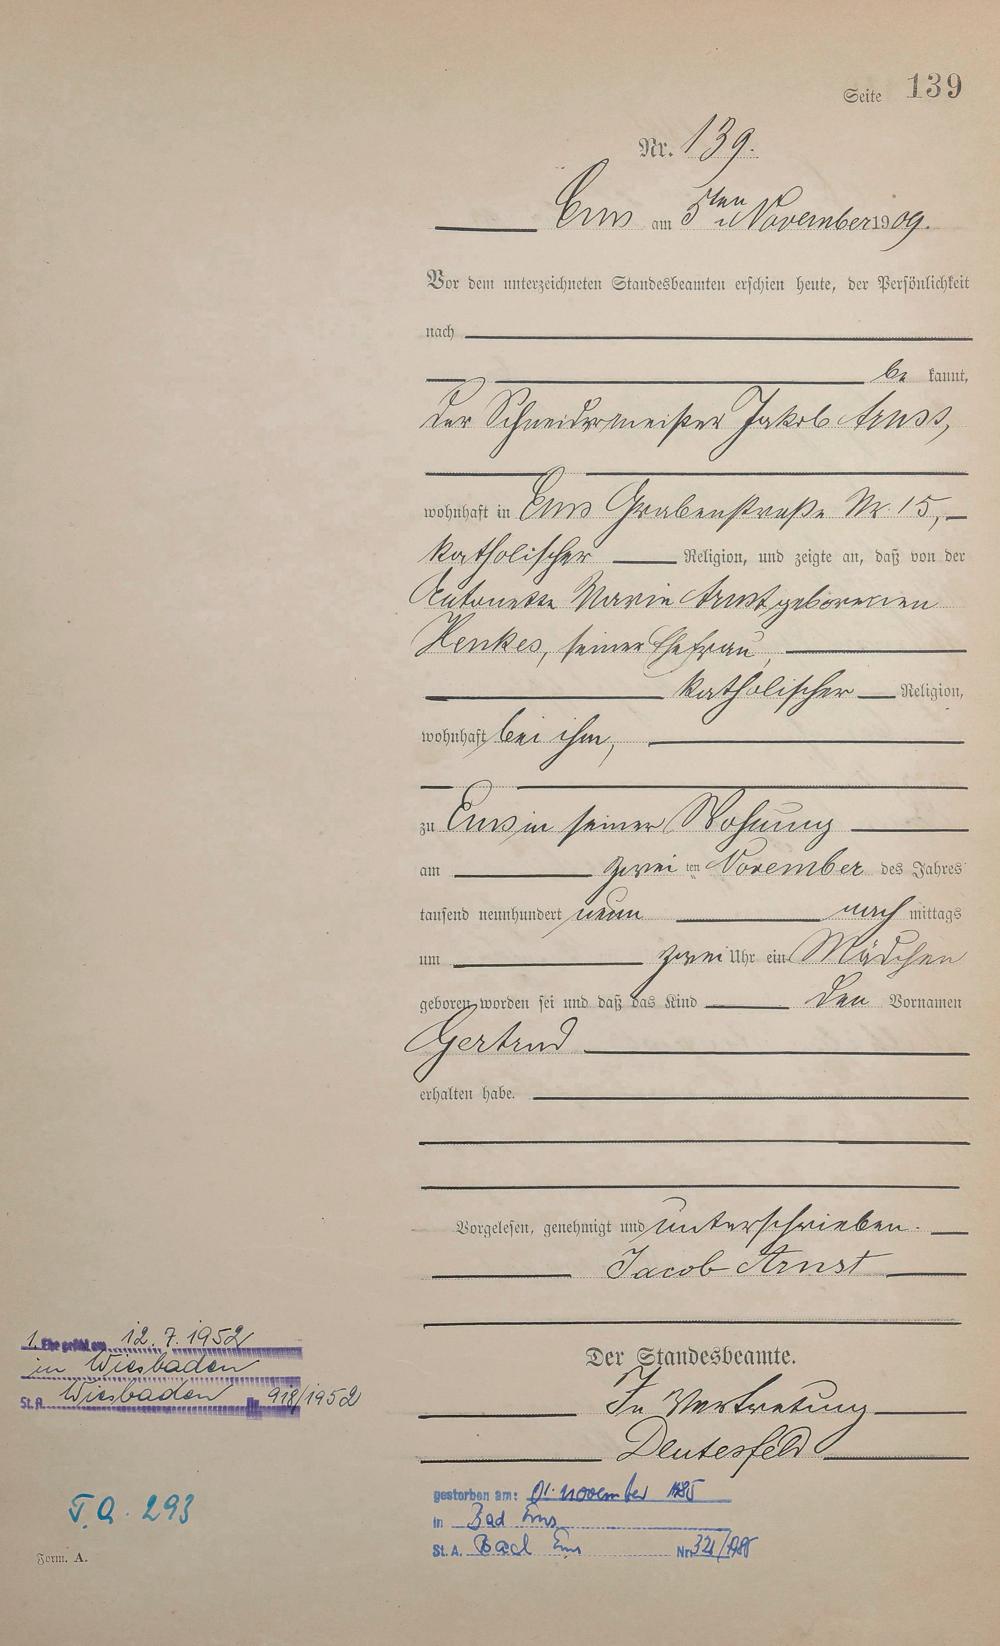 Seite 139
Nr. 139.
Ems am 5ten November 1909.
Vor dem unterzeichneten Standesbeamten erschien heute, der Persönlichkeit
nach
be kannt,
der Schneidermeister Jakob Arnst,
wohnhaft in Ems Grabenstraße Nr. 15,
katholischer Religion, und zeigte an, daß von der
Antonette Marie Arnst geborenen
Henkes, seiner Ehefrau,
katholischer Religion,
wohnhaft bei ihm,
zu Ems in seiner Wohnung
am zwei ten November des Jahres
tausend neunhundert neun nach mittags
um zwei Uhr ein Mädchen
geboren worden sei und daß das Kind den Vornamen
Gertrud
erhalten habe.
Vorgelesen, genehmigt und unterschrieben.
Jacob Arnst
Der Standesbeamte.
In Vertretung
Deutesfeld
1. Ehe geschl. am 12. 7. 1952
in Wiesbaden
St. A. Wiesbaden Nr. 918/1952
gestorben am: 01. november 1985
in Bad Ems
St. A. Bad Ems Nr. 321/1985
293
Form. A.